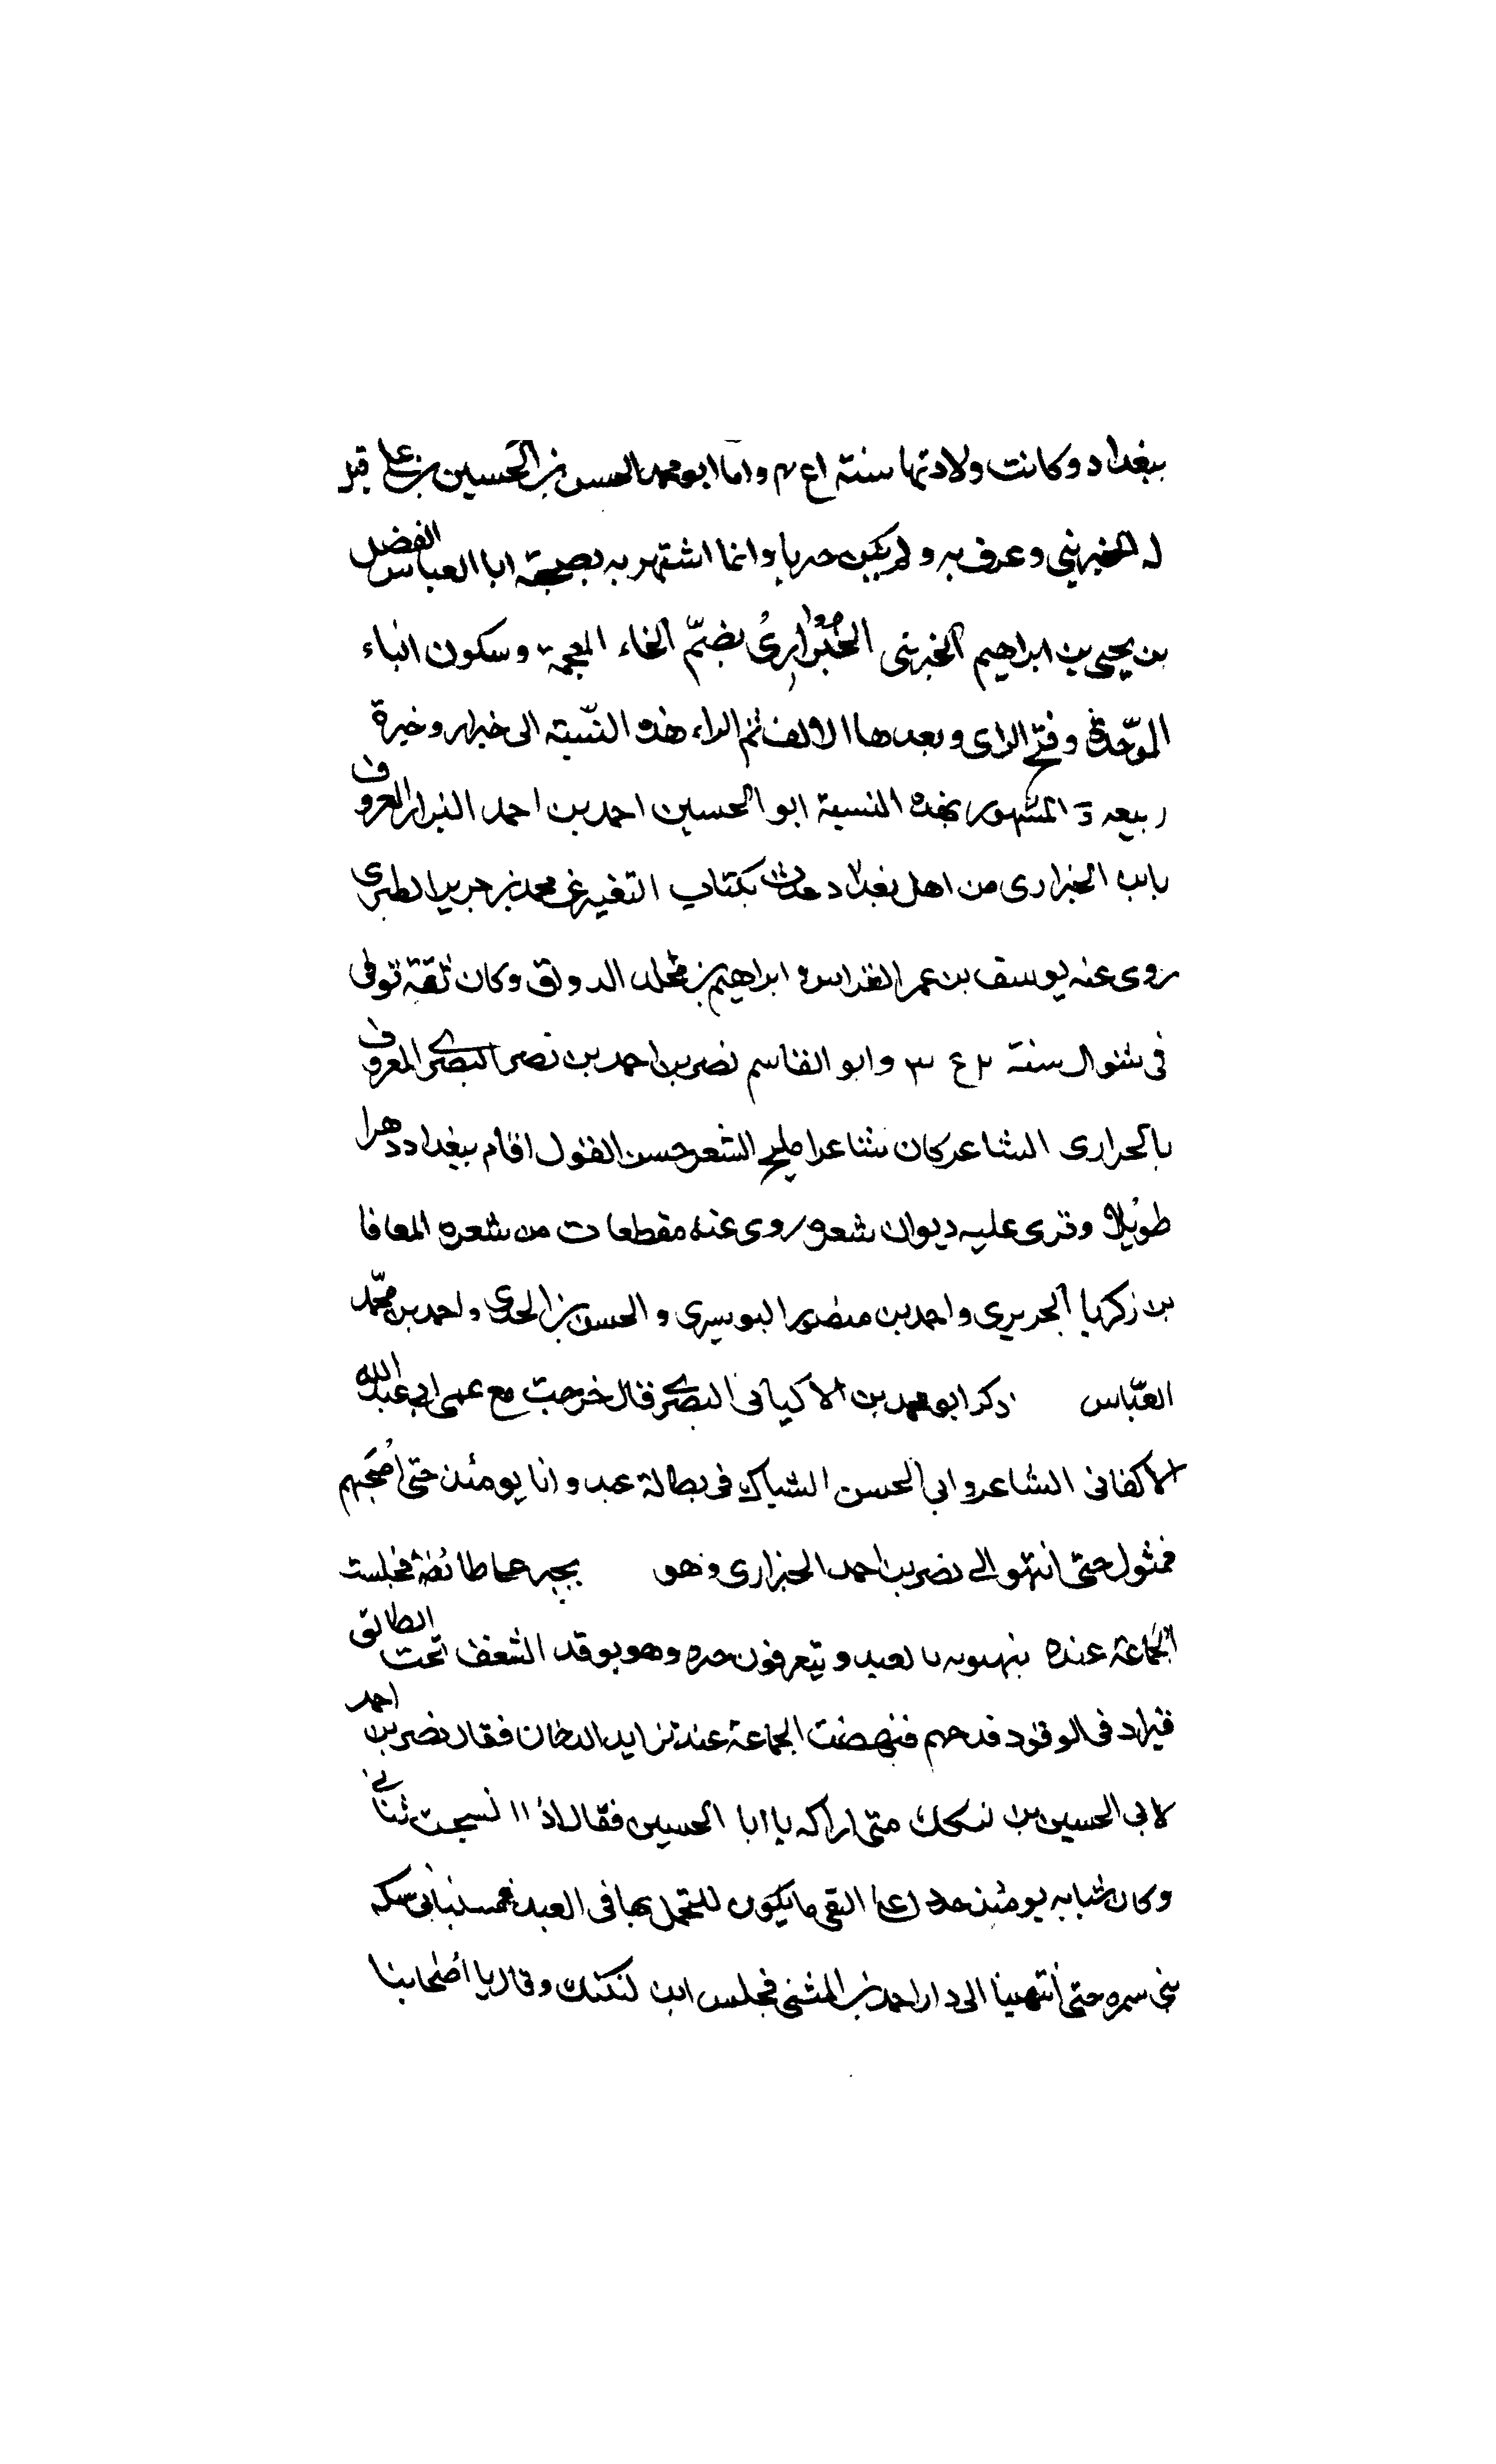 ببغداد وكانت ولادتها سنة اع٣ واما ابو محمد الحسن بن الحسين بن على قيل
له الخبريني وعرف به ولم يكن خبريا وانما اشتهر به بصحبته ابا العباس الفضل
بن يحيى بن ابراهيم الخبريني الخُبْزارِىُ بضمّ الخاء المعجمة وسكون الباء
الموّحدة وفتح الزاى وبعدها الالف ثم الراء هذه النّسبة الى
المشهور بهذه النسبة ابو الحسين احمد بن احمد البزار المعروف
بابن الخبزارى من اهل بغداد حدث بكتاب التفسير عن محمد بن جرير الطبرى
روى عنه يوسف بن عمر القواس وابراهيم بن مخلد الدولق وكان ثقة توفى
فى شوال سنة ٢ع٣ وابو القاسم نصر بن احمد بن نصر البصرى المعروف
بالحرارى الشاعر كان شاعرا مليح الشعر حسن القول اقام ببغداد دهرا
طويلا وقرى عليه ديوان شعره روى عنه مقطعات من شعره المعافا
بن زكريا الجريرى واحمد بن منصور البوسيرى والحسن بن واحمد بن محمّد
العبّاس ذكر ابو محمد بن الاكيانى البصرى قال خرجت مع عمى ابى عبد الله
الاكفانى الشاعر وابى الحسن الشباك فى بطالة عيد وانا يومئذ حتى اُصَحبهم
فمثول حتى انتهو الى نصر بن احمد الحبزارى وهو يخبز على طائفة فجلست
الجماعة عنده يهنونه بالعيد ويتعرفون خبره وهو يوقد الشغف تحت الطابق
فزاد فى الوقود فدخهم فنهضت الجماعة عند تزايد الدخان فقال نصر بن احمد
لابى الحسين بن لنكك متى اراك يا ابا الحسين فقال اذا نسجت ثيابى
وكان ثيابه يومئذ جدد على النقى ما يكون للتجمل بها فى العيد فمشينا فى سكة
بنى سمره حتى انتهينا الى دار احمد بن المثنى فجلس ابن لنكك وقال يا اصحابنا